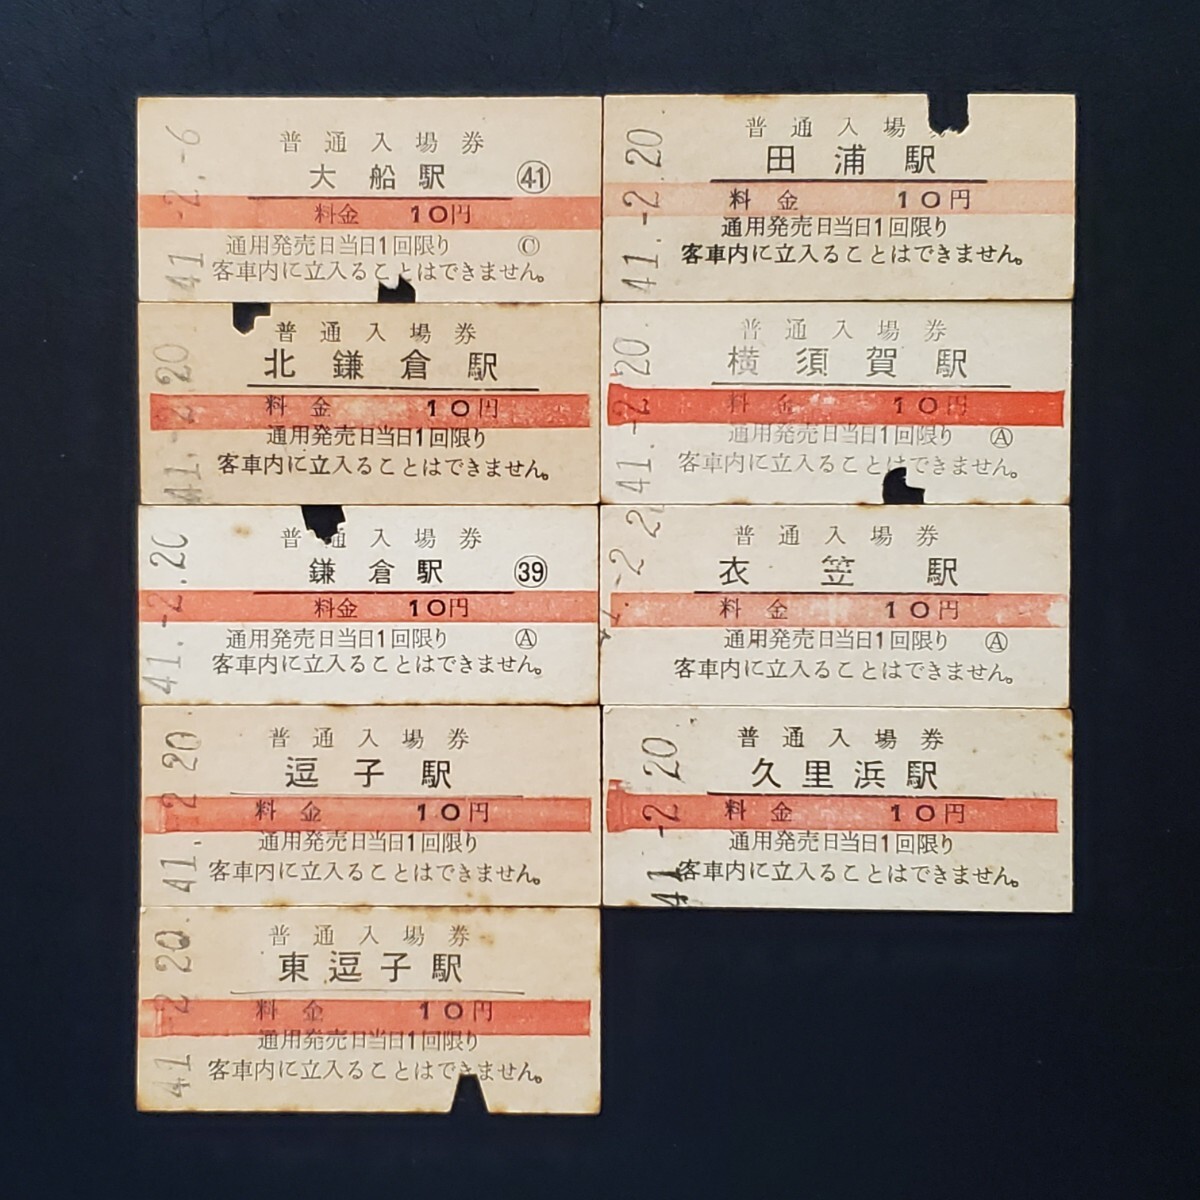 41.-2.-6
普通入場券
大船駅 ㊶
料金 10円
通用発売日当日1回限り Ⓒ
客車内に立入ることはできません。
41.-2.20
普通入場
田浦駅
料金 10円
通用発売日当日1回限り
客車内に立入ることはできません。
41.-2.20
普通入場券
北鎌倉駅
料金 10円
通用発売日当日1回限り
客車内に立入ることはできません。
41.-2.20.
普通入場券
横須賀駅
料金 10円
通用発売日当日1回限り Ⓐ
客車内に立入ることはできません。
41.-2.20
普通入場券
鎌倉駅 ㊴
料金 10円
通用発売日当日1回限り Ⓐ
客車内に立入ることはできません。
-2.2
普通入場券
衣笠駅
料金 10円
通用発売日当日1回限り Ⓐ
客車内に立入ることはできません。
41.-2.20.
普通入場券
逗子駅
料金 10円
通用発売日当日1回限り
客車内に立入ることはできません。
41.-2.20
普通入場券
久里浜駅
料金 10円
通用発売日当日1回限り
客車内に立入ることはできません。
41.-2.20.
普通入場券
東逗子駅
料金 10円
通用発売日当日1回限り
客車内に立入ることはできません。